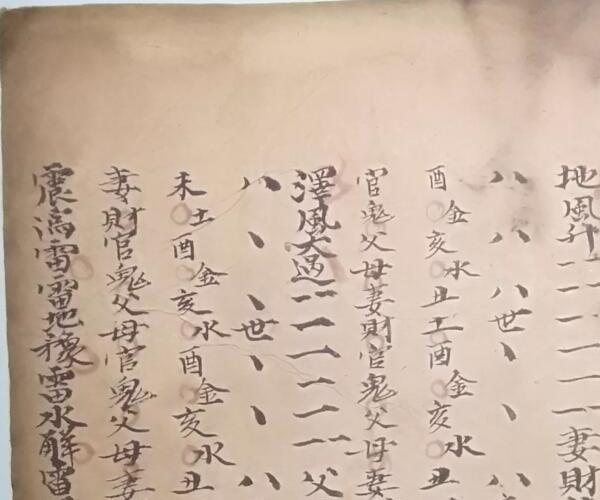 地風升 妻財
八八八世丶丶八
酉金亥水丑土酉金亥水丑
官鬼父母妻財官鬼父母妻
澤風大過 父
八丶丶世丶丶八
未土酉金亥水酉金亥水丑
妻財官鬼父母官鬼父母妻
震為雷雷地豫雷水解雷